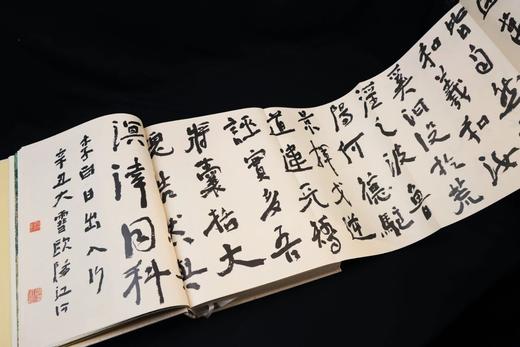 皆自然
和羲和汝
奚汩没於荒
淫之波魯
陽何德駐
景揮戈逆
道違天矯
誣實多吾
將囊括大
塊浩然與
溟涬同科
李白日出入行
辛丑大雪歐陽江河